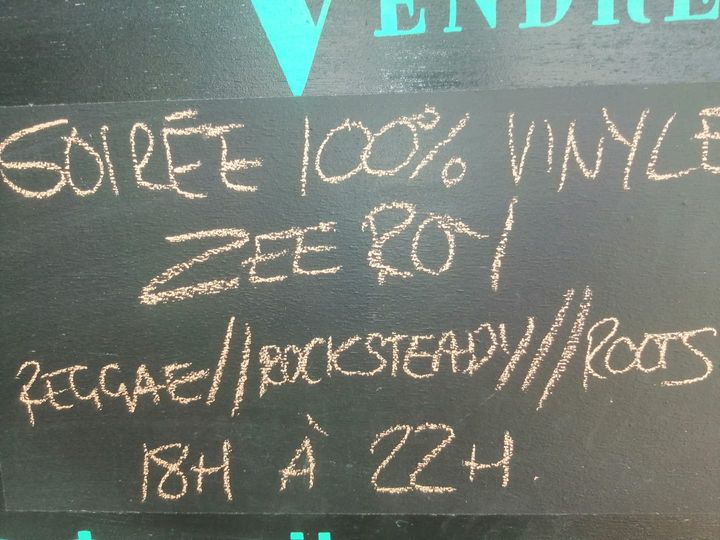 VENDRE
SOIRÉE 100% VINYLE
ZEE ROY
REGGAE//ROCKSTEADY///ROOTS
18H À 22H.